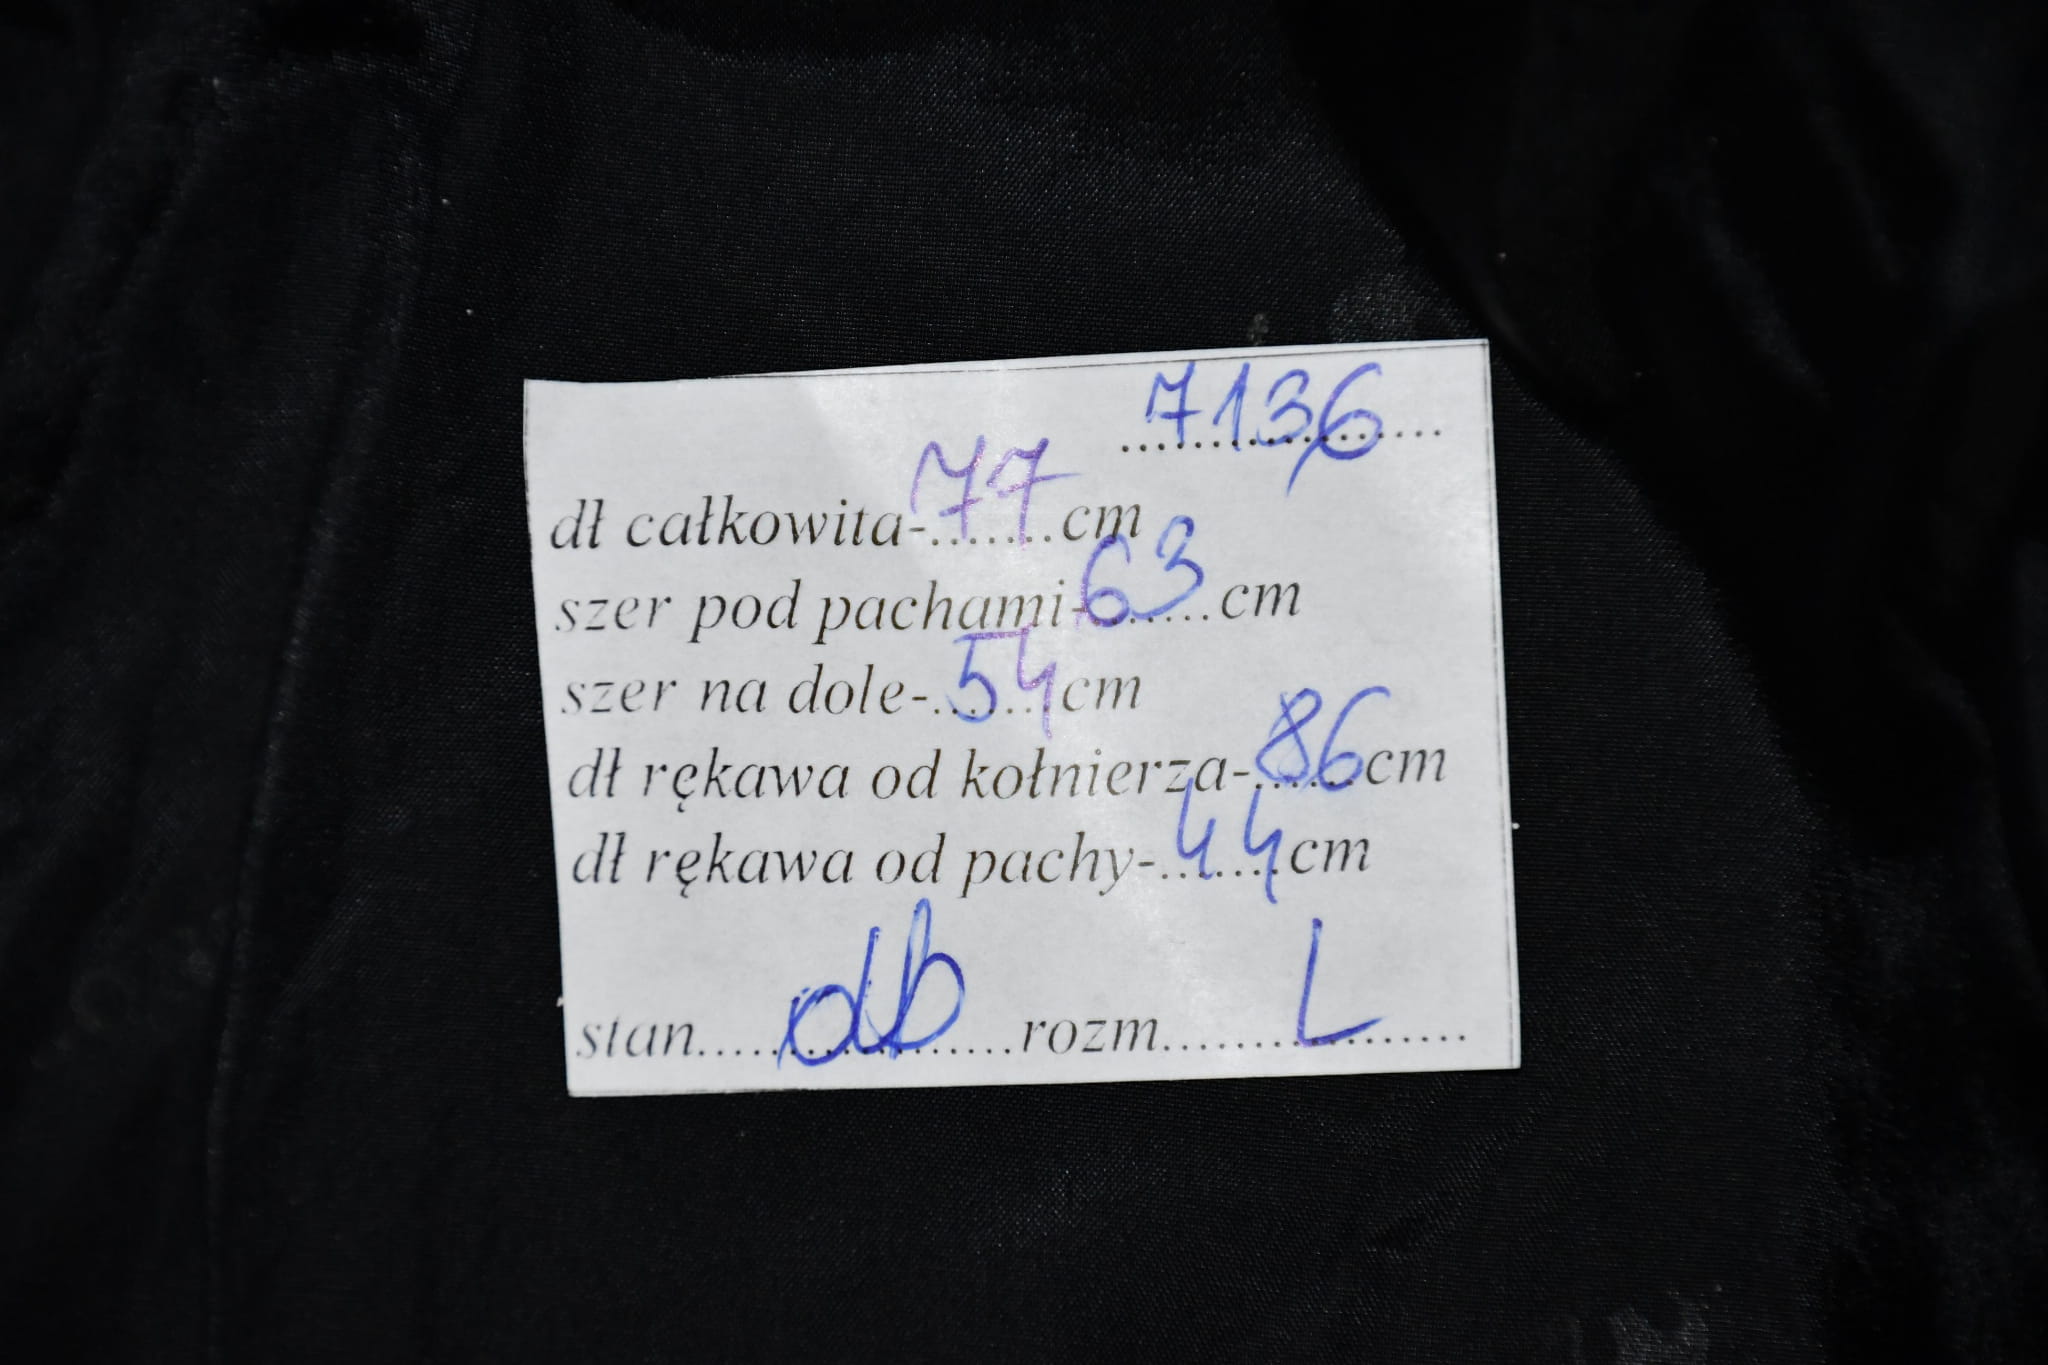 7136
dł całkowita-77cm
szer pod pachami-63cm
szer na dole-54cm
dł rękawa od kołnierza-86cm
dł rękawa od pachy-44cm
stan.....db.....rozm.....L.....